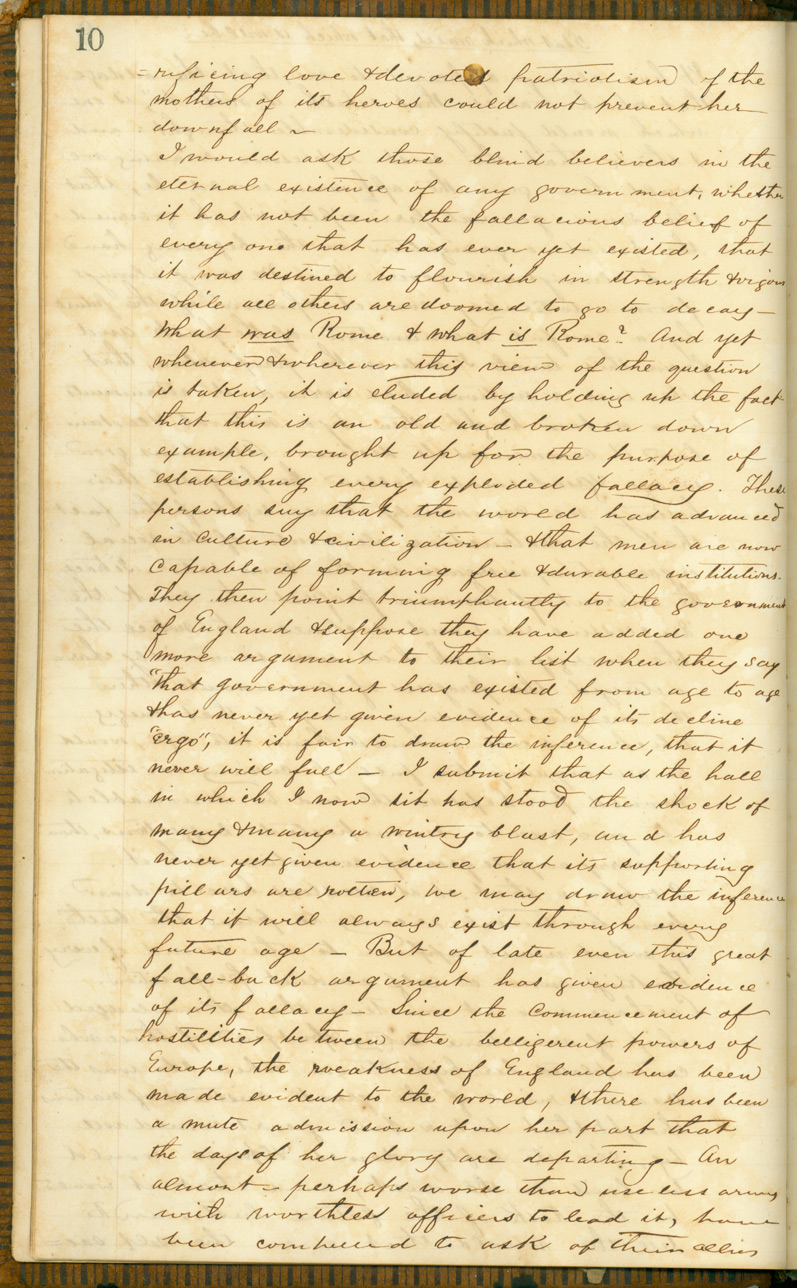 10
=rificing love & devoted patriotism of the
mothers of its heroes could not prevent her
downfall ~
I would ask those blind believers in the
eternal existence of any government, whether
it has not been the fallacious belief of
every one that has ever yet existed, that
it was destined to flourish in strength & vigour
while all others are doomed to go to decay –
What was Rome & what is Rome? And yet
whenever & wherever this view of the question
is taken, it is eluded by holding up the fact
that this is an old and broken down
example, brought up for the purpose of
establishing every exploded fallacy. These
persons say that the world has advanced
in culture & civilization – & that men are now
capable of forming free & durable institutions.
They then point triumphantly to the government
of England & suppose they have added one
more argument to their list when they say
"that government has existed from age to age
& has never yet given evidence of its decline
"ergo", it is fair to draw the inference, that it
never will fall – I submit that as the hall
in which I now sit has stood the shock of
many & many a wintry blast, and has
never yet given evidence that its supporting
pillars are rotten, we may draw the inference
that it will always exist through every
future age – But of late even this great
fall-back argument has given evidence
of its fallacy – Since the commencement of
hostilities between the belligerent powers of
Europe, the weakness of England has been
made evident to the world, & there has been
a mute admission upon her part that
the days of her glory are departing – An
almost – perhaps worse than useless army
with worthless officers to lead it, have
been compelled to ask of their allies